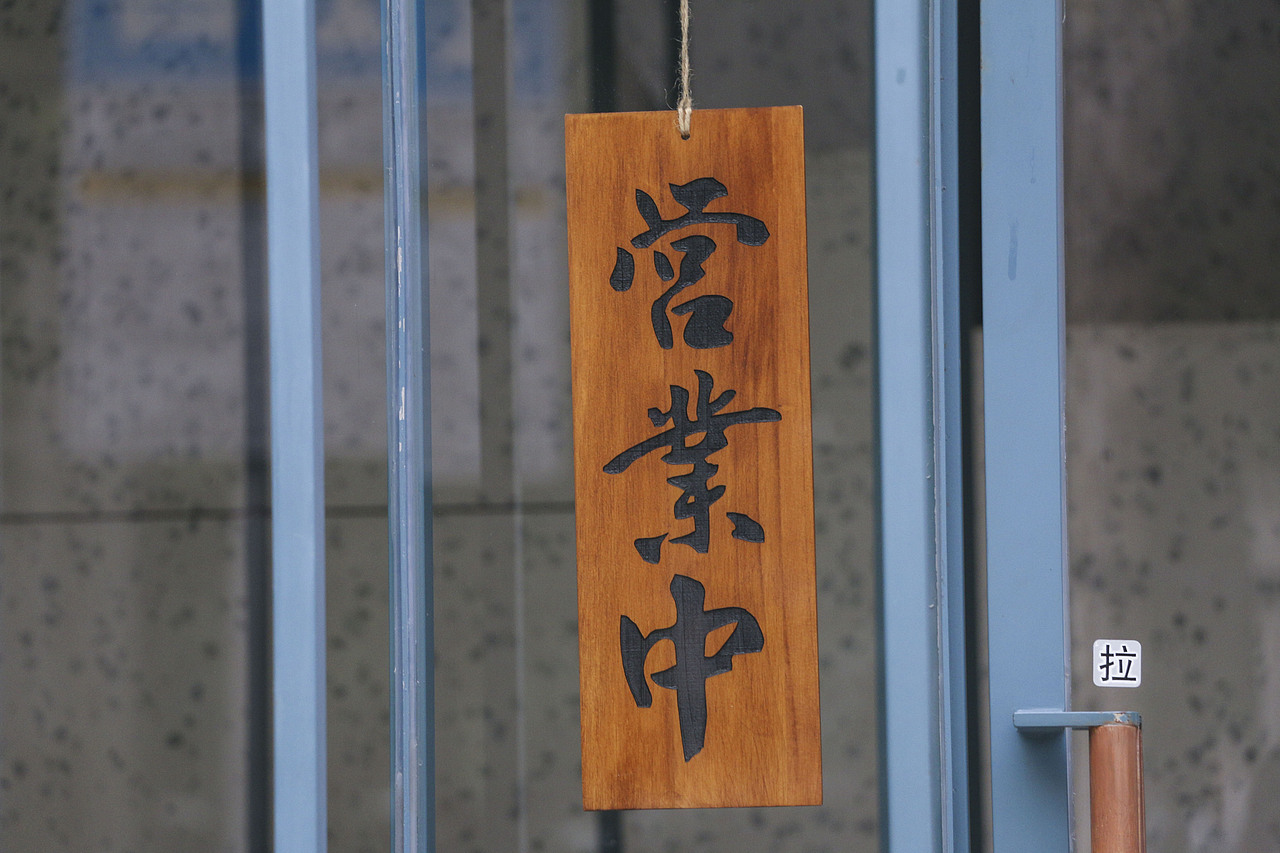 営業中
拉